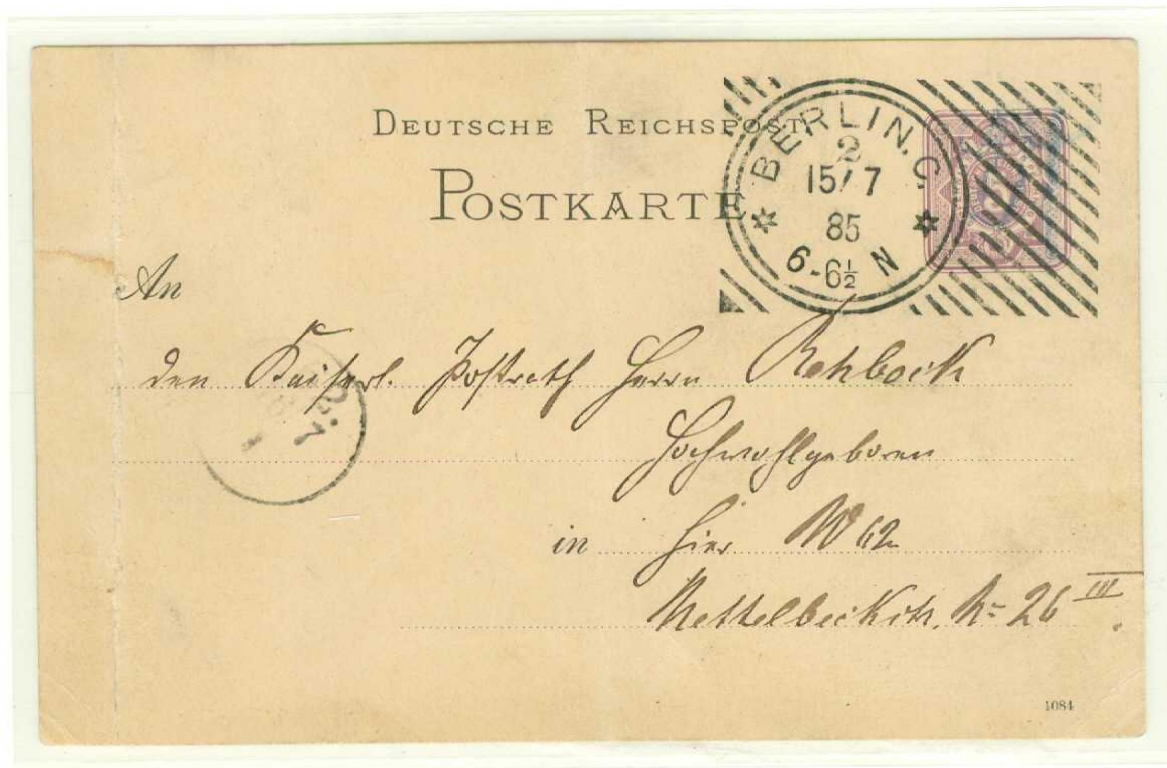 DEUTSCHE REICHSPOST
POSTKARTE
BERLIN. C.
2
15/7
85
6-6½ N
5
An
den Kaiserl. Postrath Herrn Rehbock
Hochwohlgeboren
in hier W 62
Nettelbeckstr. No 26 III.
1084